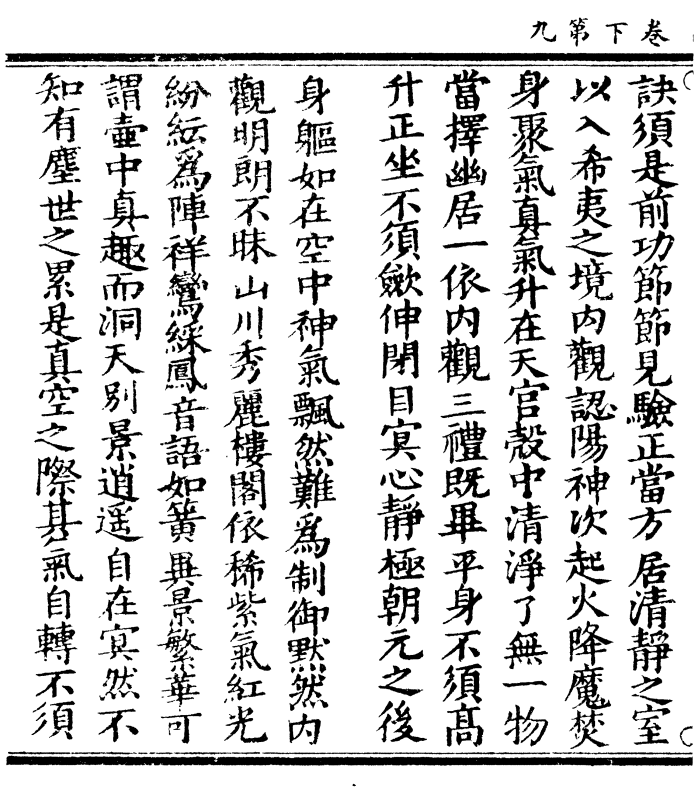 卷下第九
訣須是前功節節見驗正當方居清靜之室
以入希夷之境内觀認陽神次起火降魔焚
身聚氣真氣升在天宫殼中清淨了無一物
當擇幽居一依内觀三禮既畢平身不須髙
升正坐不須斂伸閉目冥心靜極朝元之後
身軀如在空中神氣飄然難爲制御默然内
觀明朗不昧山川秀麗樓閣依稀紫氣紅光
紛紜爲陣祥鸞綵鳳音語如簧異景繁華可
謂壷中真趣而洞天别景逍遥自在冥然不
知有塵世之累是真空之際其氣自轉不須